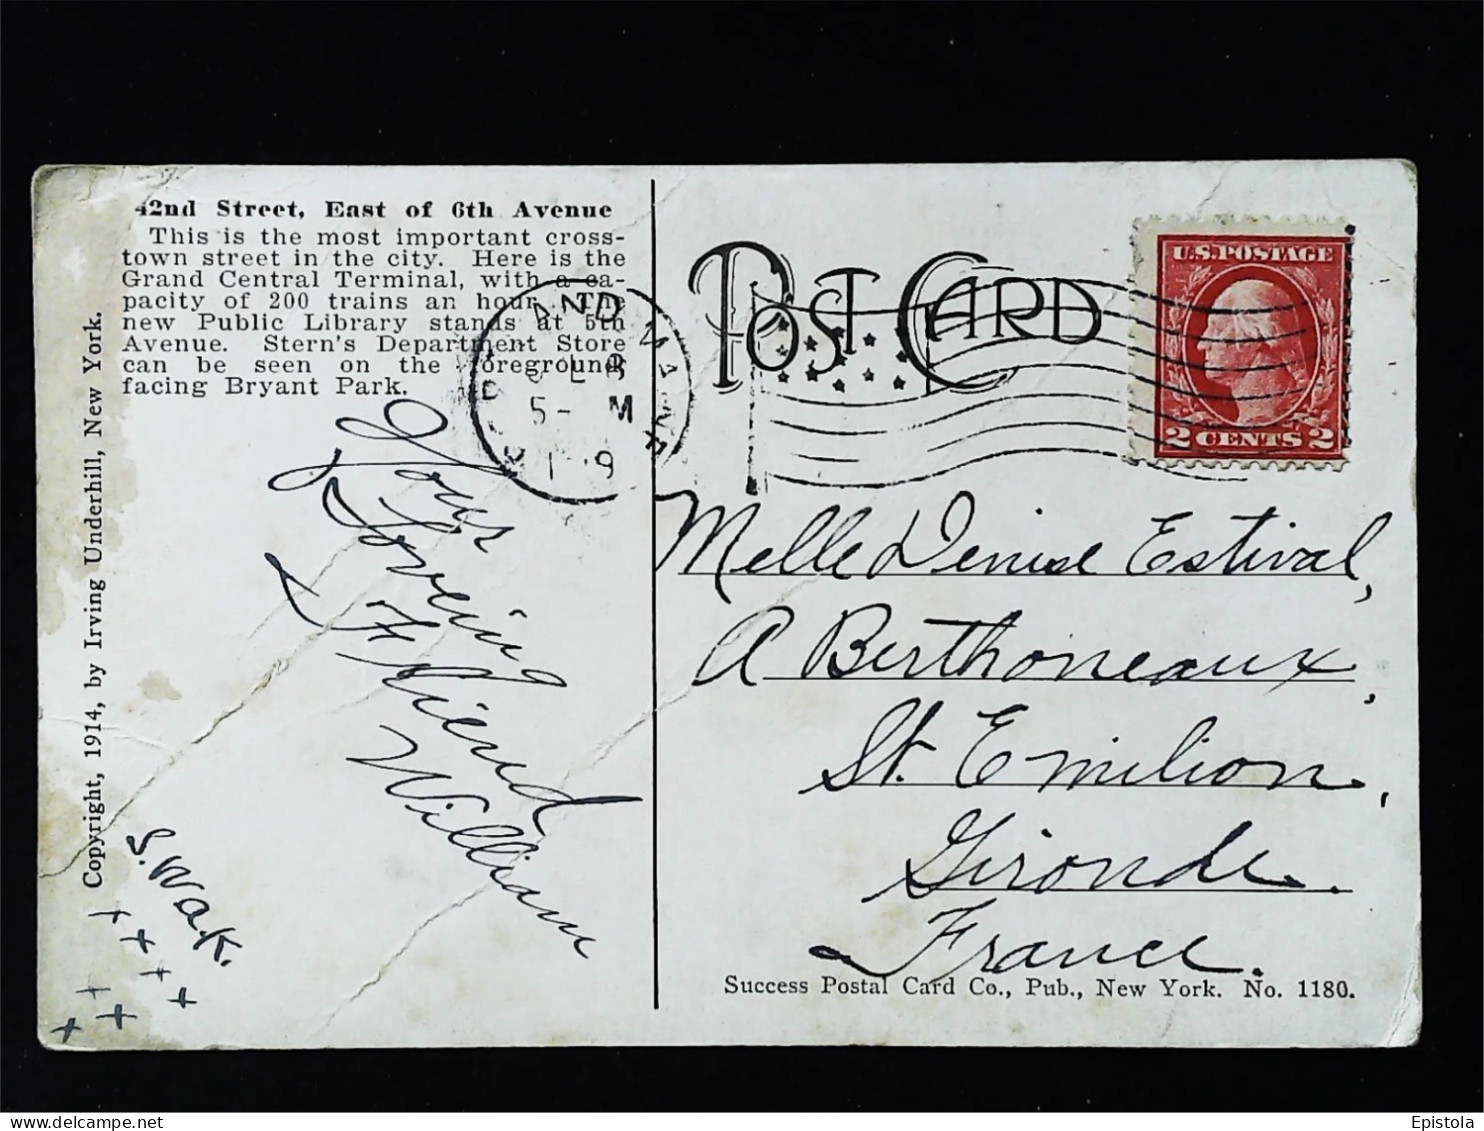 42nd Street, East of 6th Avenue
This is the most important cross-
town street in the city. Here is the
Grand Central Terminal, with a ca-
pacity of 200 trains an hour. The
new Public Library stands at 5th
Avenue. Stern's Department Store
can be seen on the foreground,
facing Bryant Park.
Copyright, 1914, by Irving Underhill, New York.
Your
Loving
Friend
William
S.W.a.K.
+ + + +
+ + +
POST CARD
U.S. POSTAGE
2 CENTS 2
MAINE
5- M
Melle Denise Estival,
A Berthoneaux,
St. Emilion,
Gironde.
France.
Success Postal Card Co., Pub., New York. No. 1180.
Epistola